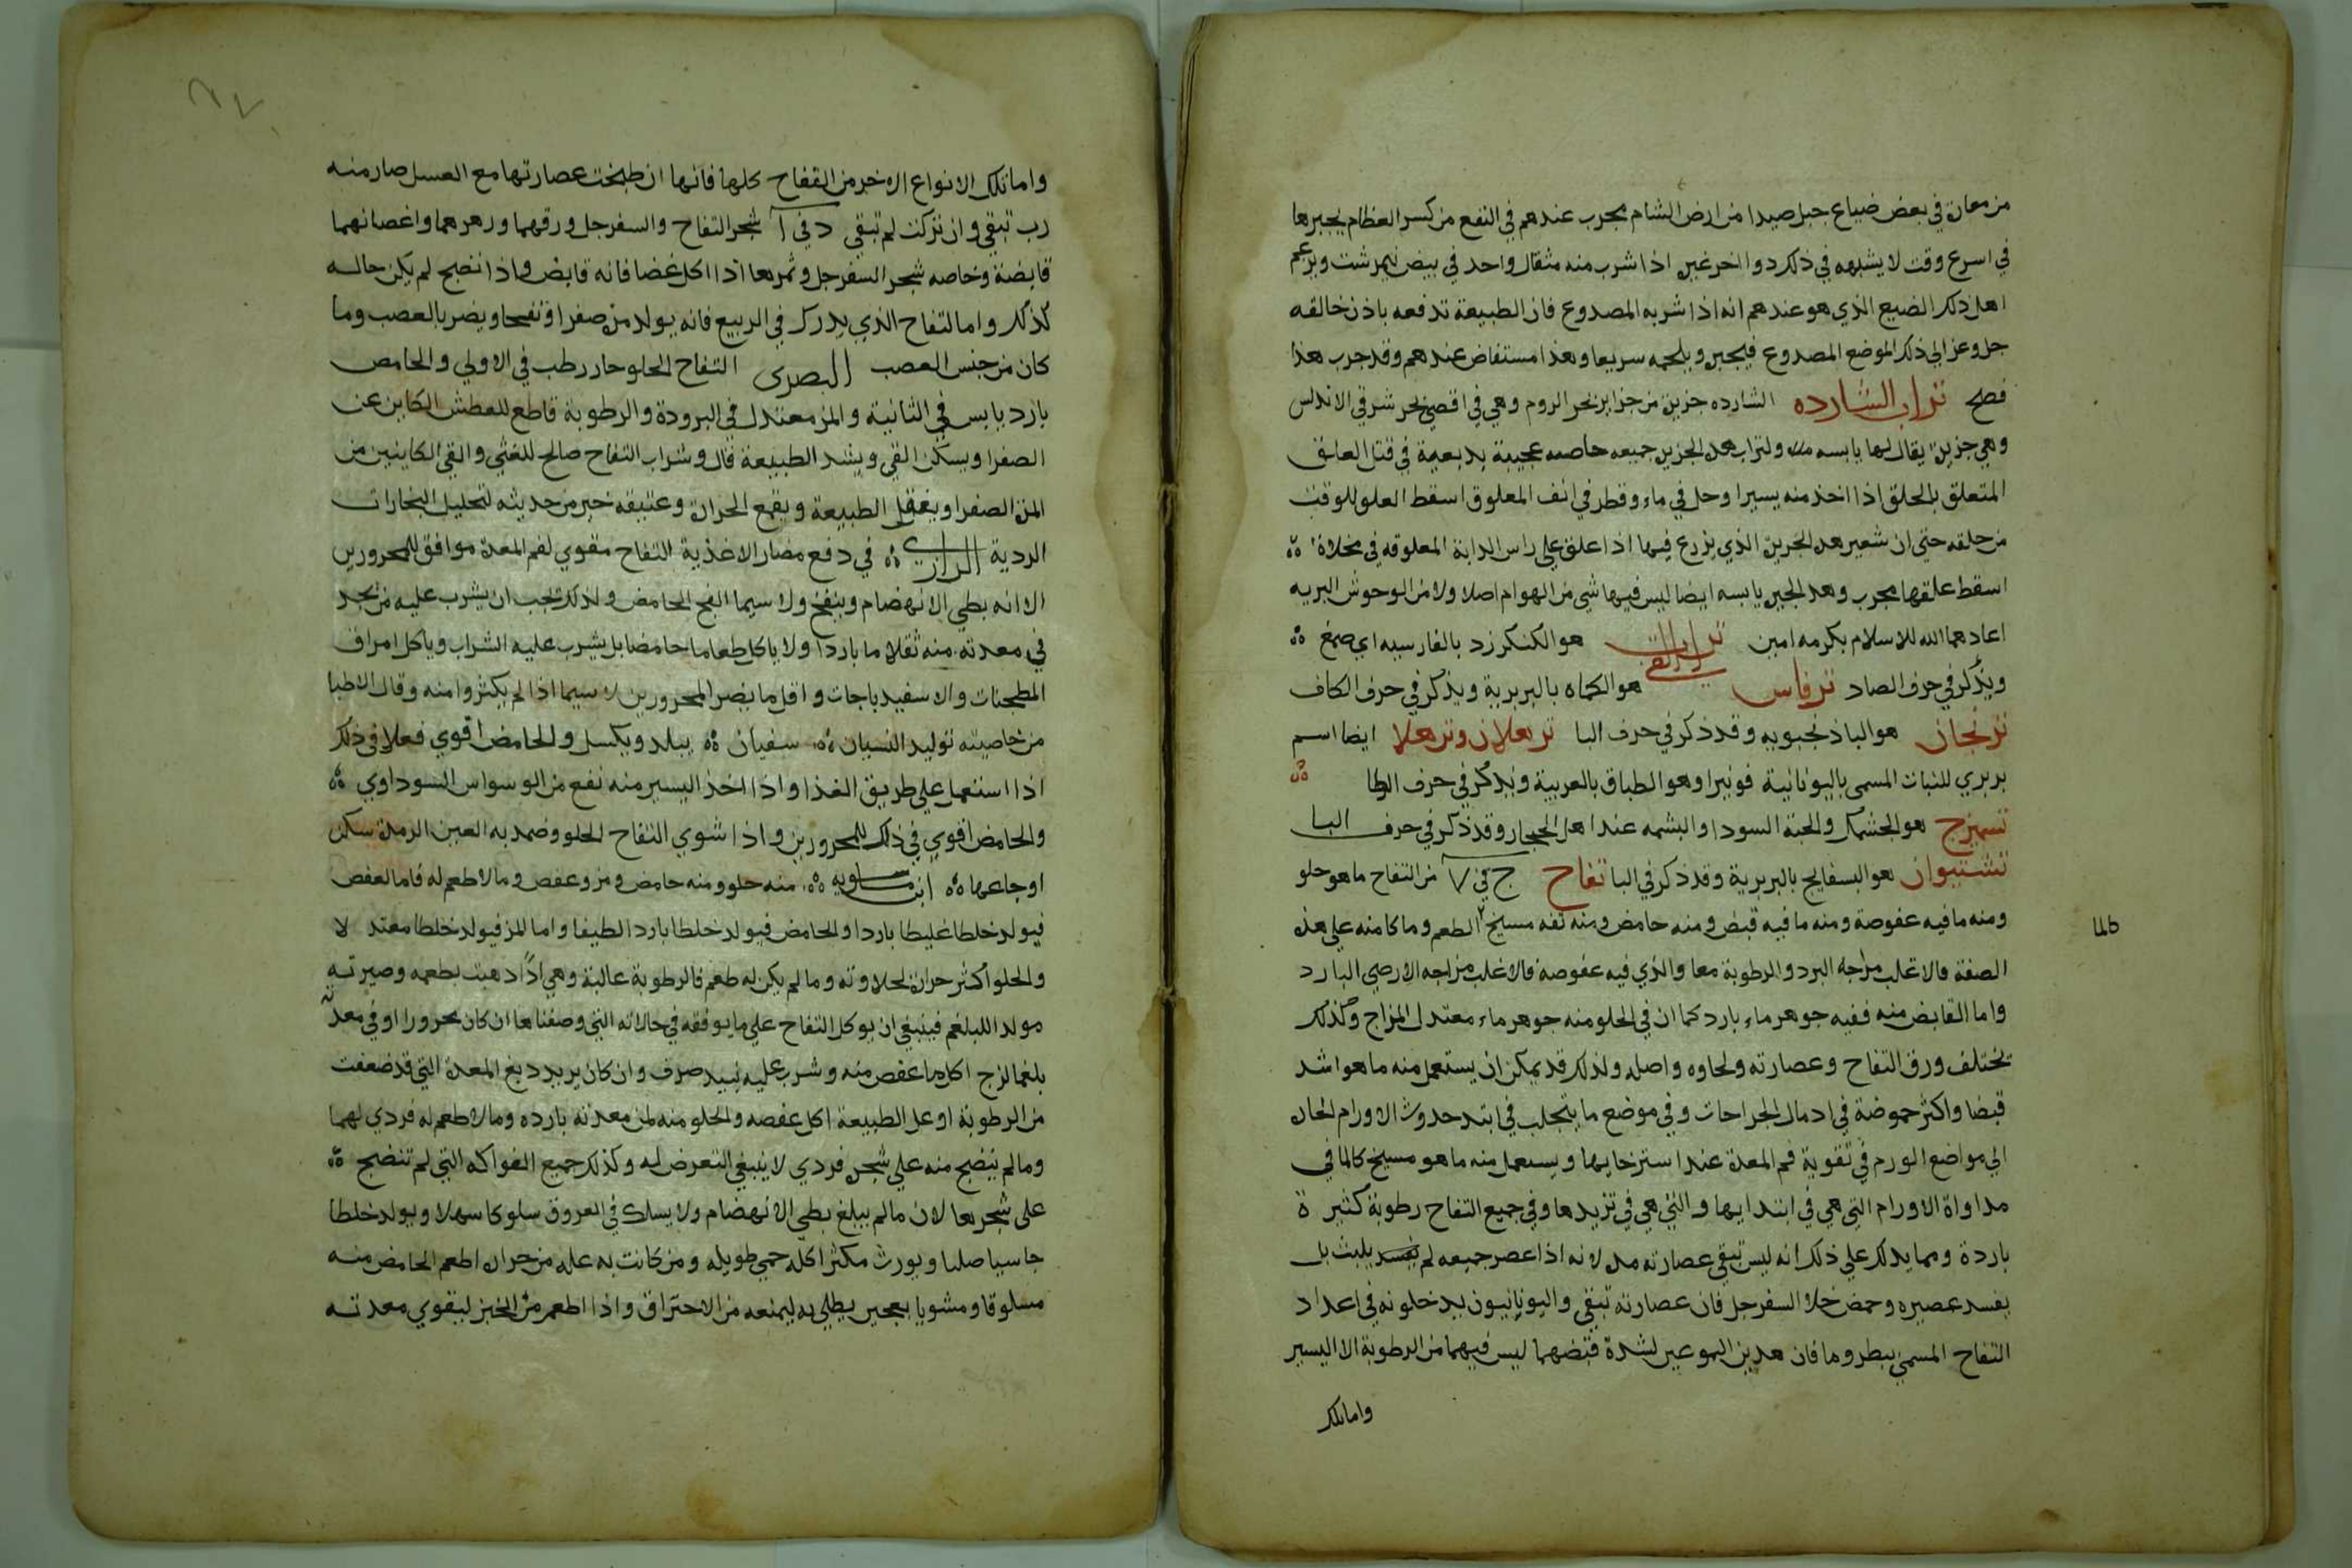 من معان في بعض ضياع جبل صيدا من ارض الشام مجرب عندهم في النفع من كسر العظام يجبرها
في اسرع وقت لا يشبهه في ذلك دوا اخر غيره اذا شرب منه مثقال واحد في بيض نيمرشت ويزعم
اهل ذلك الضيع الذي هو عندهم انه اذا شربه المصدوع فان الطبيعة تدفعه باذن خالقه
جل وعز الي ذلك الموضع المصدوع فيجبره ويلحمه سريعا وهذا مستفاض عندهم وقد جرب هذا
فصح تراب الشارده الشارده جزيرة من جزاير بحر الروم وهي في اقصي بحر شرقي الاندلس
وهي جزيرة يقال لها يابسه ولتراب هذه الجزيرة جميعه خاصه عجيبة بديعة في قتل العلق
المتعلق بالحلق اذا اخذ منه يسيرا وحل في ماء وقطر في انف المعلوق اسقط العلق للوقت
من حلقه حتي ان شعير هذه الجزيرة الذي يزرع فيها اذا علق علي راس الدابة المعلوقه في مخلاة
اسقط علقها مجرب وهذه الجزيرة يابسه ايضا ليس فيها شي من الهوام اصلا ولا من الوحوش البريه
اعادهما الله للاسلام بكرمه امين تراب القي هو الكنكرزد بالفارسيه اي صمغ
ويذكر في حرف الصاد ترفاس هو الكماه بالبربرية ويذكر في حرف الكاف
ترنجان هو الباذرنجبويه وقد ذكر في حرف البا ترهلان وترهلا ايضا اسم
بربري للنبات المسمي باليونانية قونيرا وهو الطباق بالعربية ويذكر في حرف الطا
تسميزج هو الجشمك والحبة السودا والبشمه عند اهل الحجاز وقد ذكر في حرف البا
تشتيوان هو البسفايج بالبربرية وقد ذكر في البا تفاح ج في ٧ من التفاح ما هو حلو
ومنه ما فيه عفوصة ومنه ما فيه قبض ومنه حامض ومنه تفه مسيخ الطعم وما كان منه علي هذه
الصفة فالاغلب مزاجه البرد والرطوبة معا والذي فيه عفوصة فالاغلب مزاجه الارضي البارد
واما القابض منه ففيه جوهر ماء بارد كما ان في الحلو منه جوهر ماء معتدل المزاج وكذلك
تختلف ورق التفاح وعصارته ولحاوه واصله ولذلك قد يمكن ان يستعمل منه ما هو اشد
قبضا واكثر حموضة في ادمال الجراحات وفي موضع ما يتجلب في ابتد حدوث الاورام الحاره
الي مواضع الورم في تقوية فم المعدة عند استرخايها ويستعمل منه ما هو مسيخ كالما في
مداواة الاورام التي هي في ابتدايها والتي هي في تزيدها وفي جميع التفاح رطوبة كثيرة
باردة ومما يدلك علي ذلك انه ليس تبقي عصارته مده لانه اذا عصر جميعه لم يلبث بل
يفسد عصيره وحمض خلا السفرجل فان عصارته تبقي واليونانيون يدخلونه في اعداد
التفاح المسمي ببطروما فان هذين النوعين لشدة قبضهما ليس فيهما من الرطوبة الا اليسير
واما تلك
طالما
واما تلك الانواع الاخر من التفاح كلها فانها ان طبخت عصارتها مع العسل صار منه
رب تبقي وان تركت لم تبقي د في ا شجر التفاح والسفرجل ورقهما وزهرهما واغصانهما
قابضة وخاصه شجر السفرجل وثمرها اذا اكل غضا فانه قابض واذا نضج لم يكن حاله
كذلك واما التفاح الذي يدرك في الربيع فانه يولد مرة صفرا ونفخا ويضر بالعصب وما
كان من جنس العصب البصري التفاح الحلو حار رطب في الاولي والحامض
بارد يابس في الثانية والمز معتدل في البرودة والرطوبة قاطع للعطش الكاين عن
الصفرا ويسكن القي ويشد الطبيعة قال وشراب التفاح صالح للغثي والقي الكاينين من
المرة الصفرا ويعقل الطبيعة ويقمع الحرارة وعتيقه خير من حديثه لتحليل البخارات
الردية الرازي في دفع مضار الاغذية التفاح مقوي لفم المعدة موافق للمحرورين
الا انه بطي الانهضام وينفخ ولا سيما الفج الحامض ولذلك يجب ان يشرب عليه من يجد
في معدته منه ثقلا ما باردا ولا ياكل طعاما حامضا بل يشرب عليه الشراب وياكل امراق
المطجنات والاسفيدباجات واقل ما يضر المحرورين لا سيما اذا لم يكثروا منه وقال الاطبا
من خاصيته توليد النسيان سفيان يبلد ويكسل والحامض اقوي فعلا في ذلك
اذا استعمل علي طريق الغذا واذا اخذ اليسير منه نفع من الوسواس السوداوي
والحامض اقوي في ذلك للمحرورين واذا شوي التفاح الحلو وضمد به العين الرمدة سكن
اوجاعها ابن ماسويه منه حلو ومنه حامض ومز وعفص وما لا طعم له فاما العفص
فيولد خلطا غليظا باردا والحامض فيولد خلطا باردا لطيفا واما المز فيولد خلطا معتدلا
والحلو اكثر حرارة لحلاوته وما لم يكن له طعم فالرطوبة غالبة وهي اذا ذهبت بطعمه وصيرته
مولد اللبلغم فينبغي ان يوكل التفاح علي ما يوفقه في حالاته التي وصفناها ان كان محرورا او في معدته
بلغما لزج اكل ما عفص منه وشرب عليه نبيد صرف وان كان يريد دبغ المعدة التي قد ضعفت
من الرطوبة او عل الطبيعة اكل عفصه والحلو منه لمن معدته بارده وما لا طعم له فردي لهما
وما لم ينضج منه علي شجره فردي لا ينبغي التعرض له وكذلك جميع الفواكه التي لم تنضج
على شجرها لان ما لم يبلغ بطي الانهضام ولا يسلك في العروق سلوكا سهلا ويولد خلطا
جاسيا صلبا ويورث مكثر اكله حمي طويله ومن كانت به عله من حراره اطعم الحامض منه
مسلوقا ومشويا بعجين يطلي به ليمنعه من الاحتراق واذا اطعم من الخبز ليقوي معدته